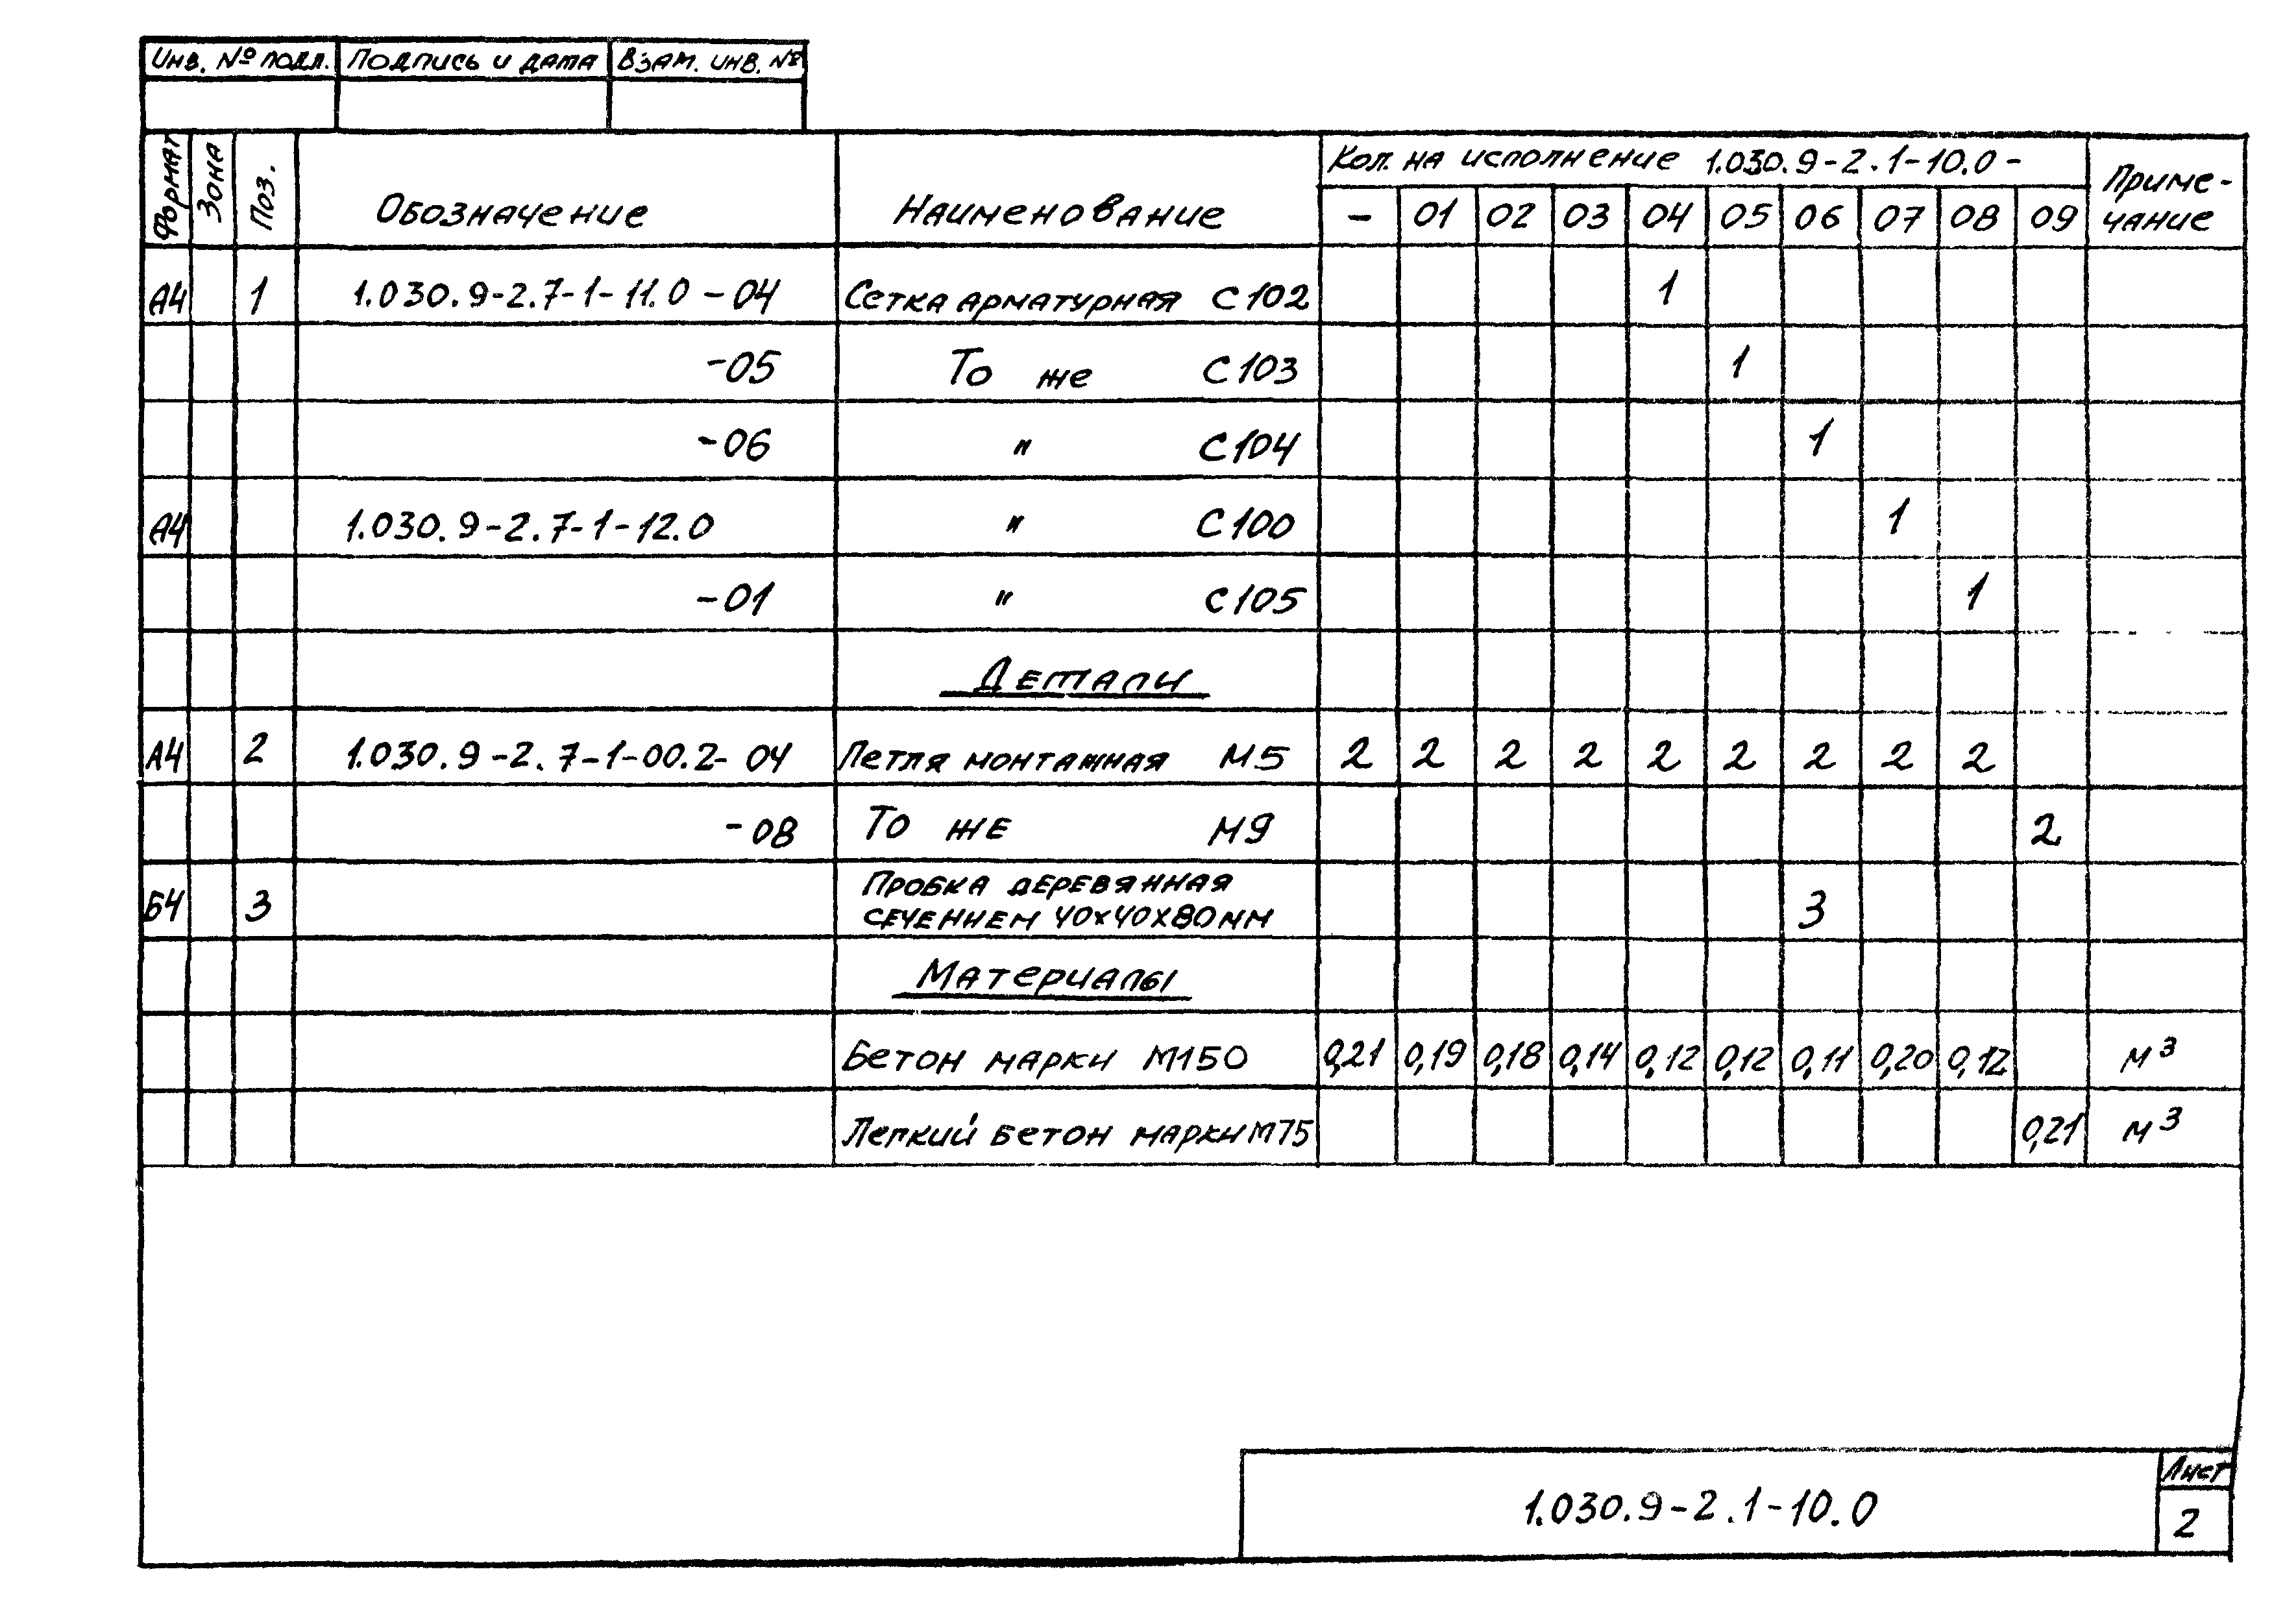 Инв. № подл. Подпись и дата Взам. инв. №
Формат Зона Поз. Обозначение Наименование Кол. на исполнение 1.030.9-2.1-10.0- Приме-
чание
- 01 02 03 04 05 06 07 08 09
А4 1 1.030.9-2.7-1-11.0-04 Сетка арматурная С102 1
-05 То же С103 1
-06 " С104 1
А4 1.030.9-2.7-1-12.0 " С100 1
-01 " С105 1
Детали
А4 2 1.030.9-2.7-1-00.2-04 Петля монтажная М5 2 2 2 2 2 2 2 2 2
-08 То же М9 2
Б4 3 Пробка деревянная
сечением 40х40х80мм 3
Материалы
Бетон марки М150 0,21 0,19 0,18 0,14 0,12 0,12 0,11 0,20 0,12 м³
Легкий бетон марки М75 0,21 м³
1.030.9-2.1-10.0
Лист
2